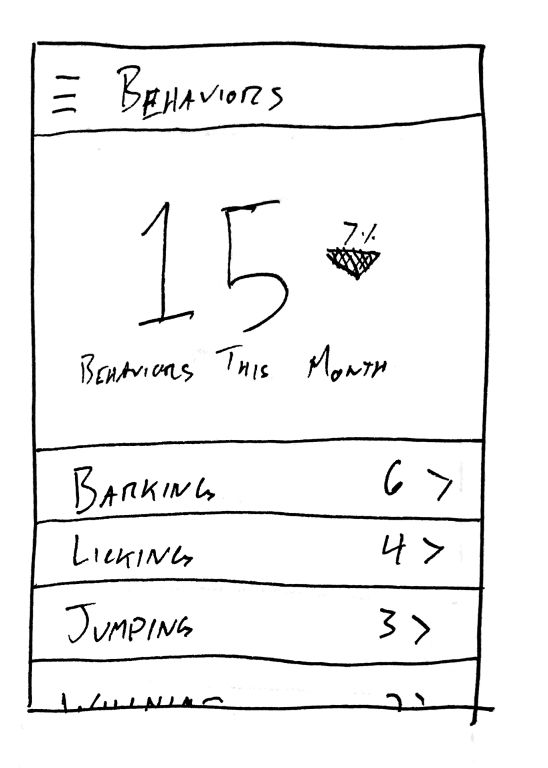 Behaviors
15 7%
Behaviors This Month
Barking 6 >
Licking 4 >
Jumping 3 >